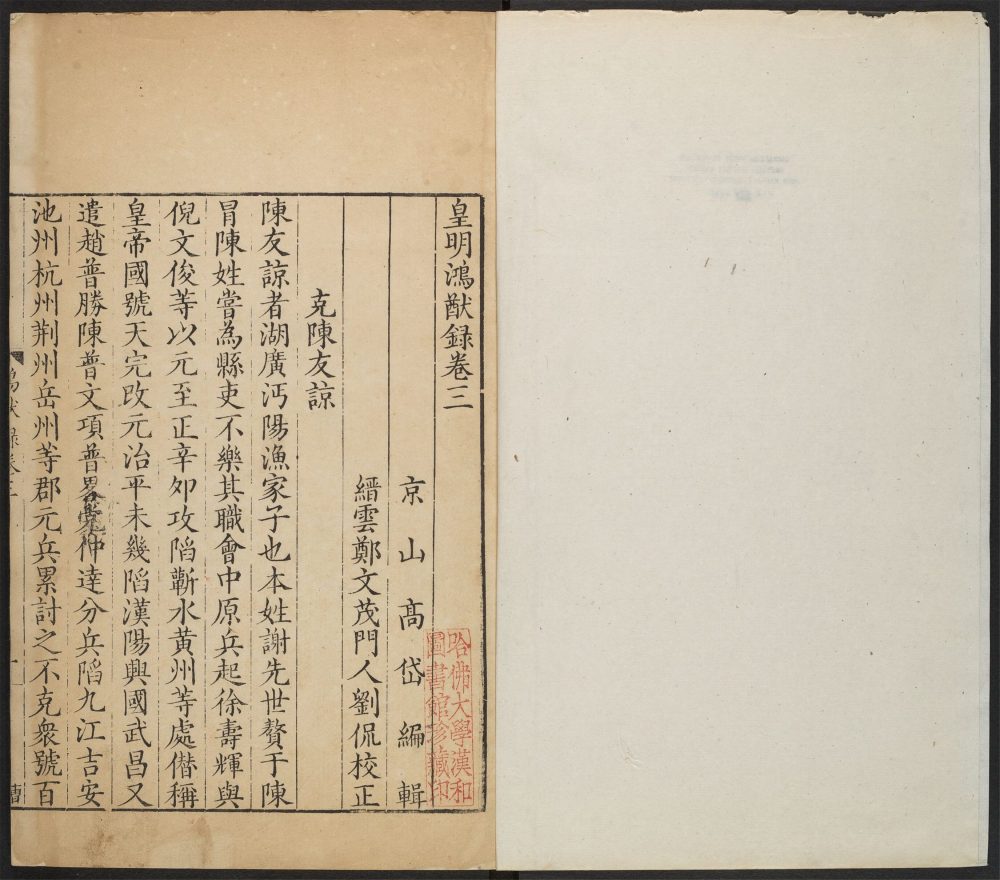 皇明鴻猷録卷三
京山高岱編輯
縉雲鄭文茂門人劉侃校正
克陳友諒
陳友諒者湖廣沔陽漁家子也本姓謝先世贅于陳
冒陳姓嘗為縣吏不樂其職會中原兵起徐壽輝與
倪文俊等以元至正辛卯攻陷蘄水黄州等處僭稱
皇帝國號天完改元治平未幾陷漢陽興國武昌又
遣趙普勝陳普文項普畧仲達分兵陷九江吉安
池州杭州荆州岳州等郡元兵累討之不克衆號百
哈佛大學漢和
圖書館珍藏印